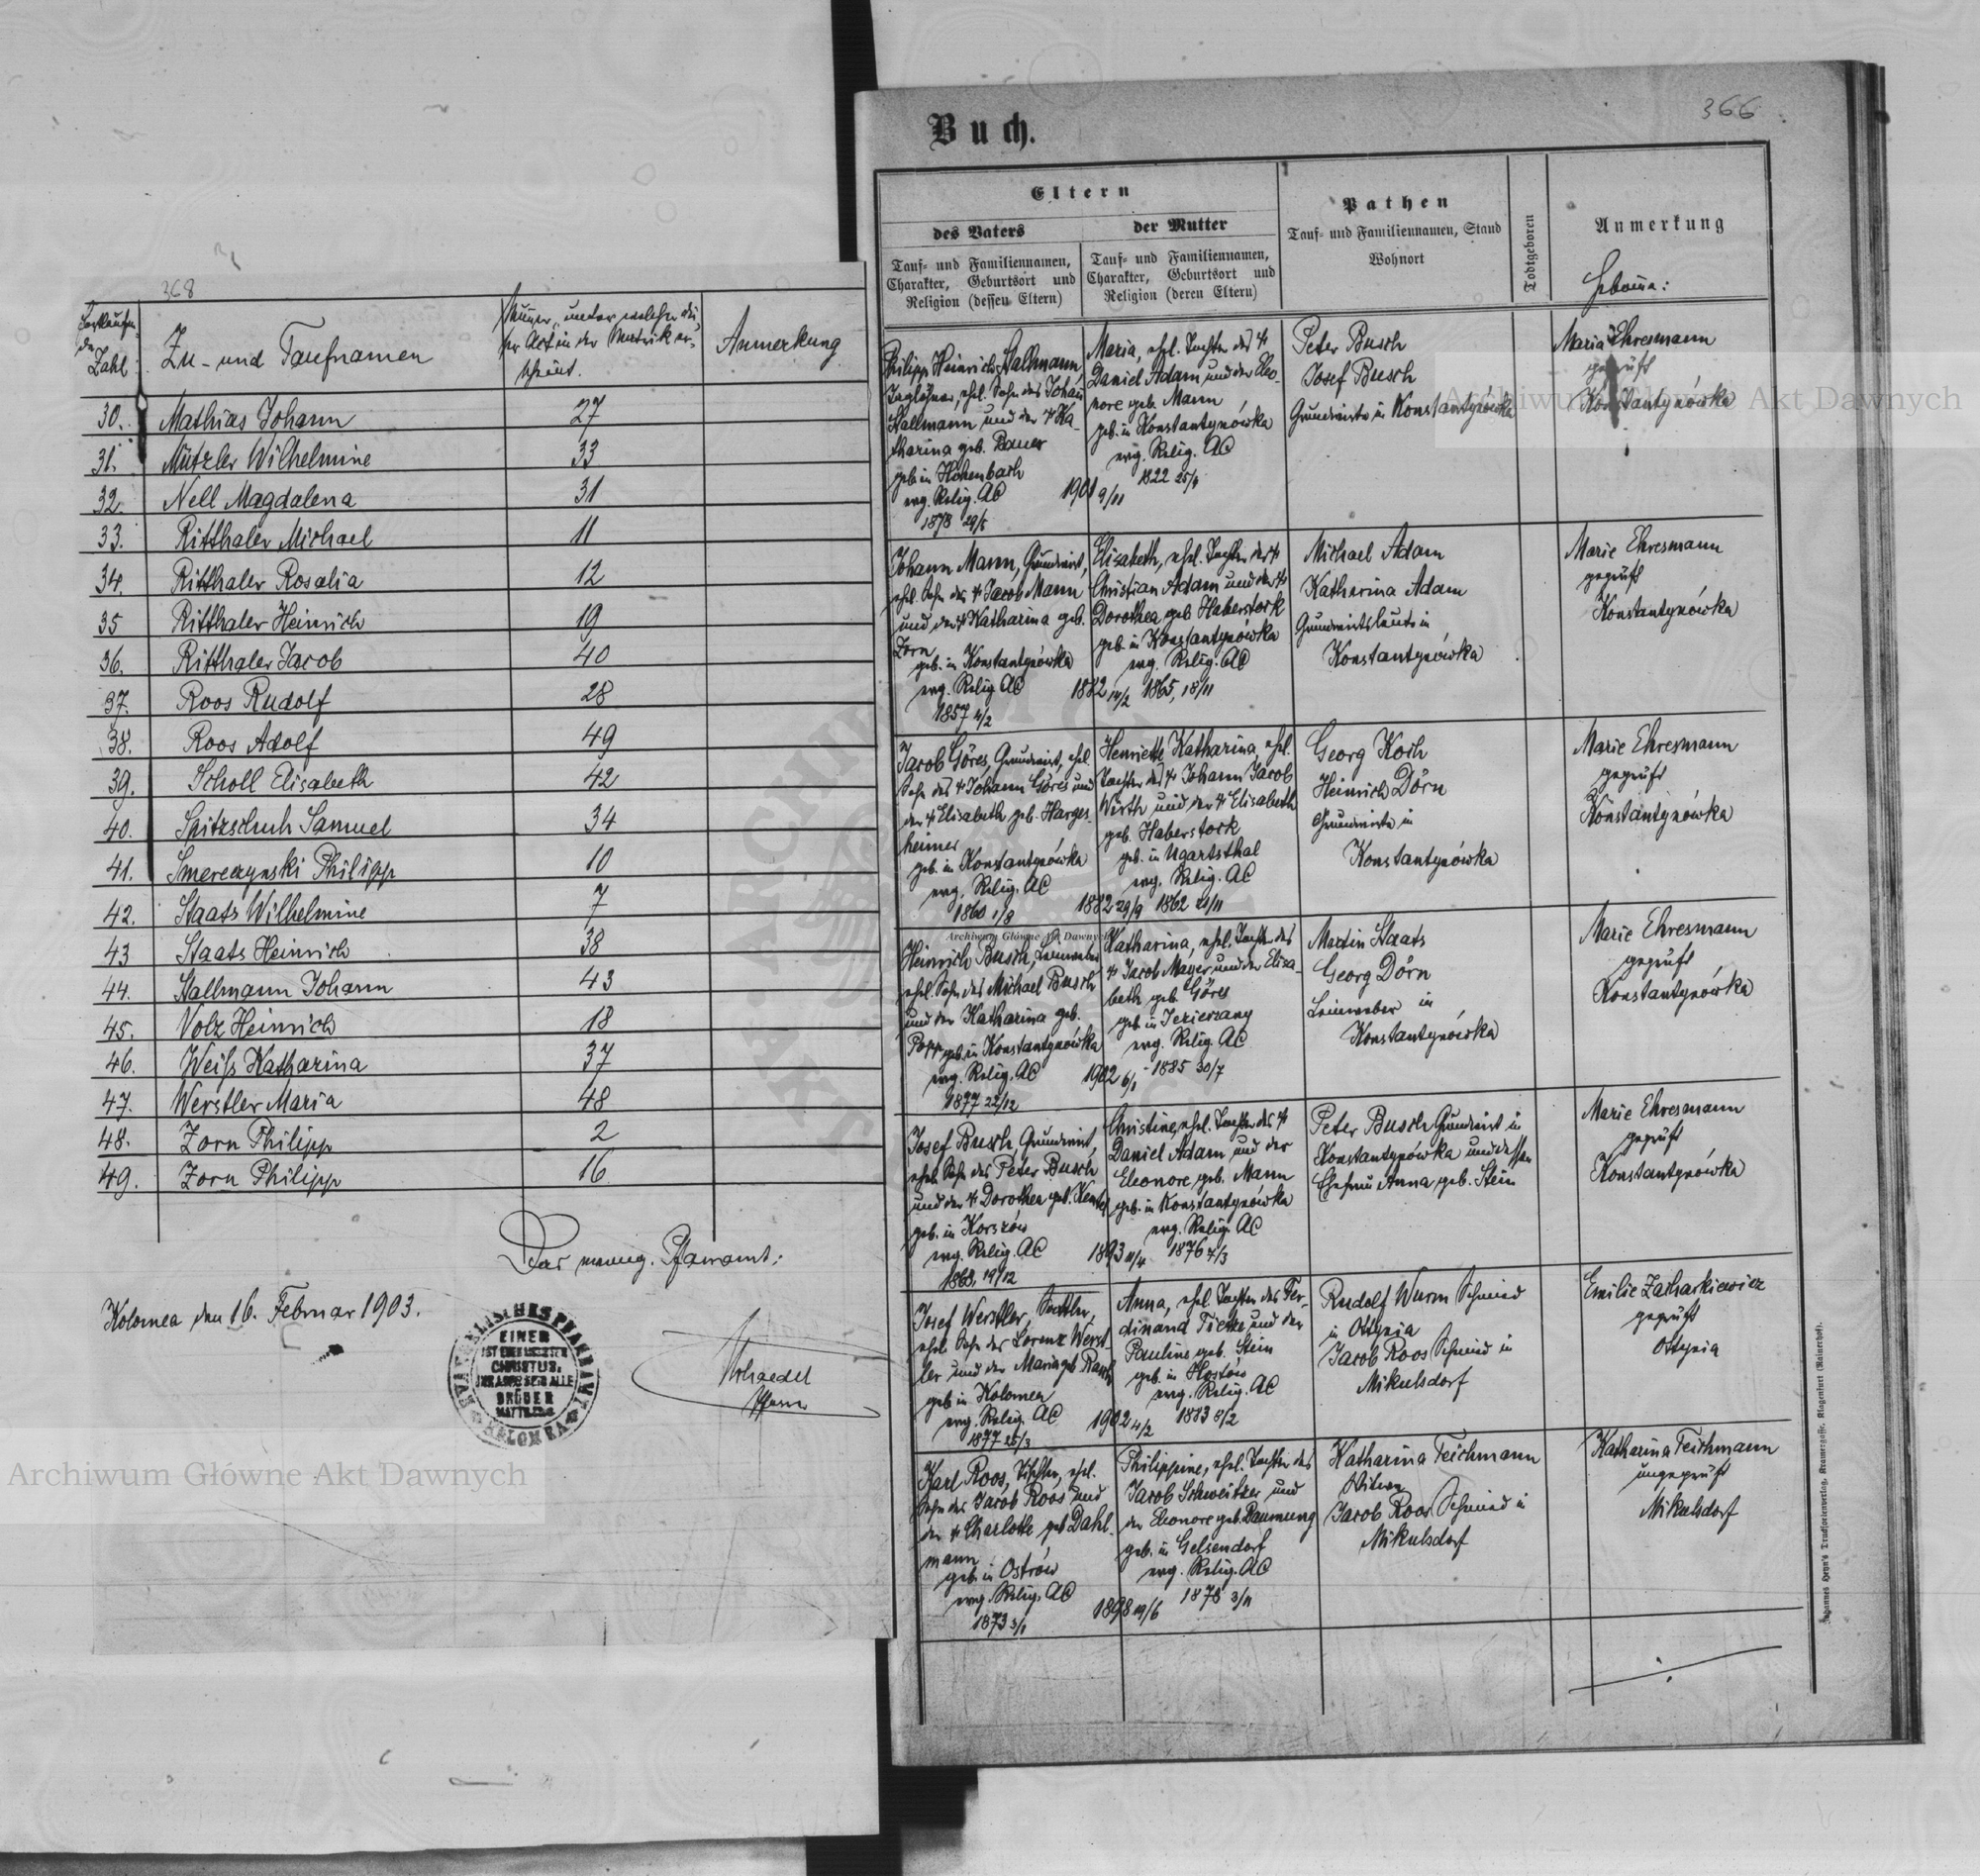 368
Fortlaufen-
de
Zahl
Zu- und Taufnamen
Nummer, unter welcher die-
ser Act in der Matrik er-
scheint.
Anmerkung
30. Mathias Johann 27
31. Mützler Wilhelmine 33
32. Nell Magdalena 31
33. Ritthaler Michael 11
34. Ritthaler Rosalia 12
35 Ritthaler Heinrich 19
36. Ritthaler Jacob 40
37. Roos Rudolf 28
38. Roos Adolf 49
39. Scholl Elisabeth 42
40. Spitzschuh Samuel 34
41. Smereczynski Philipp 10
42. Staats Wilhelmine 7
43 Staats Heinrich 38
44. Stallmann Johann 43
45. Volz Heinrich 18
46. Weiß Katharina 37
47. Werstler Maria 48
48. Zorn Philipp 2
49. Zorn Philipp 16
Das evang. Pfarramt:
Kolomea den 16. Februar 1903.
EVANGELISCHES PFARRAMT
KOLOMEA
EINER
IST EUER MEISTER
CHRISTUS,
IHR ABER SEID ALLE
BRÜDER
MATTH.
Pfarrer
Archiwum Główne Akt Dawnych
Buch.
366
Eltern
des Vaters
der Mutter
Tauf- und Familiennamen,
Charakter, Geburtsort und
Religion (dessen Eltern)
Tauf- und Familiennamen,
Charakter, Geburtsort und
Religion (deren Eltern)
Pathen
Tauf- und Familiennamen, Stand
Wohnort
Todtgeboren
Anmerkung
Hebame:
Philipp Heinrich Stallmann,
Taglöhner, ehel. Sohn des Johann
Stallmann und der † Ka-
tharina geb. Bauer
geb. in Hohenbach
evg. Relig. AC
1878 29/5
1901 9/11
Maria, ehel. Tochter des †
Daniel Adam und der Eleo-
nore geb. Mann
geb. in Konstantynówka
evg. Relig. AC
1822 25/4
Peter Busch
Josef Busch
Grundwirte in Konstantynówka
Maria Ehresmann
geprüft
Konstantynówka
Archiwum Główne Akt Dawnych
Johann Mann, Grundwirt,
ehel. Sohn des † Jacob Mann
und der † Katharina geb.
Zorn
geb. in Konstantynówka
evg. Relig AC
1857 4/2
1882 14/2
Elisabeth, ehel. Tochter des †
Christian Adam und der †
Dorothea geb. Haberstock
geb. in Konstantynówka
evg. Relig. AC
1865, 18/11
Michael Adam
Katharina Adam
Grundwirtsleute in
Konstantynówka
Marie Ehresmann
geprüft
Konstantynówka
Jacob Göres, Grundwirt, ehel.
Sohn des † Johann Göres und
der † Elisabeth geb. Harges-
heimer
geb. in Konstantynówka
evg. Relig. AC
1860 1/8
1882 29/9
Henriette Katharina, ehel.
Tochter des † Johann Jacob
Wirth und der † Elisabeth
geb. Haberstock
geb. in Ugartsthal
evg. Relig. AC
1862 21/11
Georg Koch
Heinrich Dörn
Grundwirte in
Konstantynówka
Marie Ehresmann
geprüft
Konstantynówka
Archiwum Główne Akt Dawnych
Heinrich Busch, Leinweber
ehel. Sohn des Michael Busch
und der Katharina geb.
Popp geb. in Konstantynówka
evg. Relig. AC
1877 22/12
1902 6/1
Katharina, ehel. Tochter des
† Jacob Mayer und der Elisa-
beth geb. Göres
geb. in Jezierzany
evg. Relig. AC
1885 30/7
Martin Staats
Georg Dörn
Leinweber in
Konstantynówka
Marie Ehresmann
geprüft
Konstantynówka
Josef Busch, Grundwirt,
ehel. Sohn des Peter Busch
und der † Dorothea geb.
geb. in Korszów
evg. Relig. AC
1868, 19/12
1893 11/4
Christine, ehel. Tochter des †
Daniel Adam und der
Eleonore, geb. Mann
geb. in Konstantynówka
evg. Relig. AC
1876 7/3
Peter Busch Grundwirt in
Konstantynówka und dessen
Ehefrau Anna geb. Stein
Marie Ehresmann
geprüft
Konstantynówka
Josef Werstler, Sattler,
ehel. Sohn des Lorenz Werst-
ler und der Maria geb.
geb. in Kolomea
evg. Relig. AC
1877 25/3
1902 4/2
Anna, ehel. Tochter des Fer-
dinand und der
Pauline geb. Stein
geb. in
evg. Relig. AC
1883 8/2
Rudolf Wurm Schmied
in Ottynia
Jacob Roos Schmied in
Mikulsdorf
Emilie Zacharkiewicz
geprüft
Ottynia
Karl Roos, Tischler, ehel.
Sohn des Jacob Roos und
der † Charlotte geb Dahl-
mann
geb. in Ostrów
evg. Relig. AC
1873 3/1
1898 19/6
Philippine, ehel. Tochter des
Jacob Schweitzer und
der Eleonore geb. Daumung
geb. in Gelsendorf
evg. Relig. AC
1878 3/11
Katharina Teichmann
Witwe
Jacob Roos Schmied in
Mikulsdorf
Katharina Teichmann
ungeprüft
Mikulsdorf